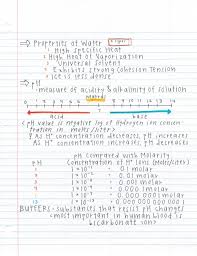 → Properties of Water
1 High Specific Heat
2 High Heat of Vaporization
3 Universal Solvent
4 Exhibits Strong Cohesion Tension
5 Ice is less dense
→ pH
- measure of acidity & alkalinity of solution
neutral
0 1 2 3 4 5 6 7 8 9 10 11 12 13 14
acid base
(pH value is negative log of Hydrogen ion concen-
tration in moles/liter)
As H⁺ concentration decreases, pH increases
As H⁺ concentration increases, pH decreases
pH compared with Molarity
pH Concentration of H⁺ Ions (Moles/liter)
0.1 molar
0.01 molar
0.001 molar
BUFFERS - substances that resist pH changes
(most important in human blood is
bicarbonate ion)